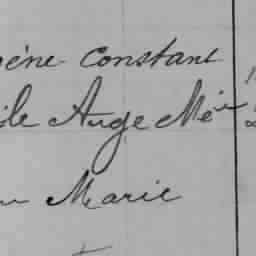 ène Constant
ile Ange Mie
Marie